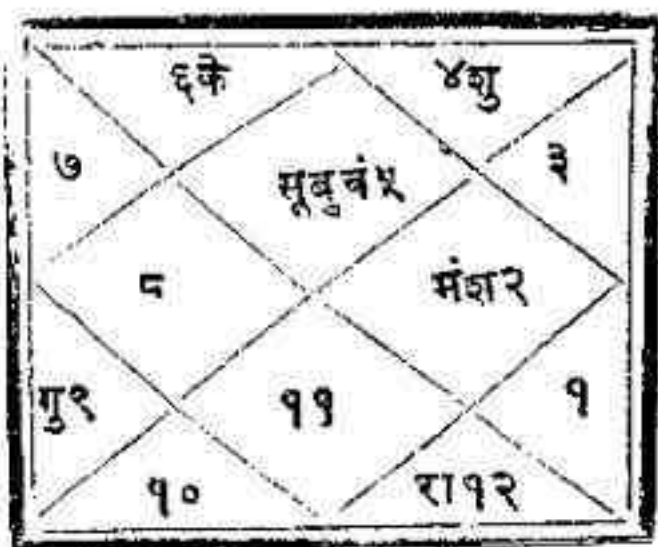 ६के
४शु
७
सूबुचं५
३
८
मंश२
गु९
११
१
१०
रा१२